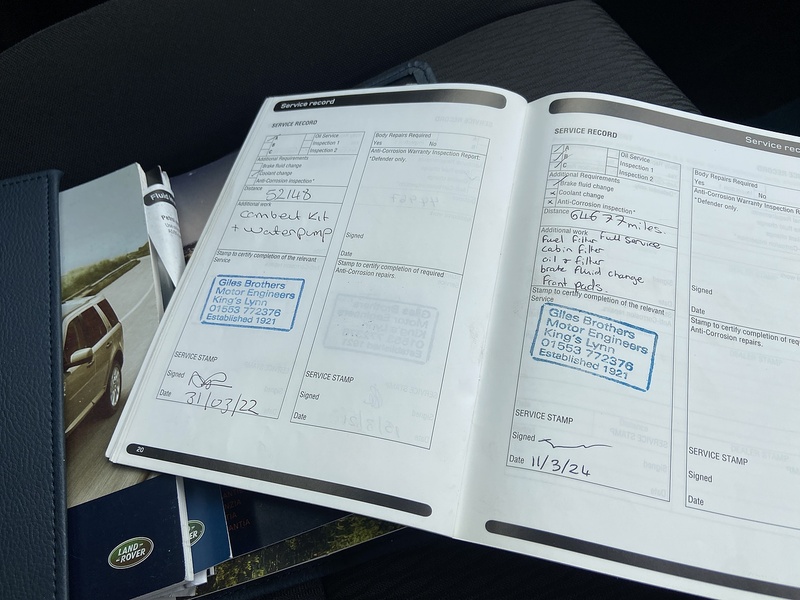 Service record
SERVICE RECORD
A
B
C
Oil Service
Inspection 1
Inspection 2
Additional Requirements
Brake fluid change
Coolant change
Anti-Corrosion Inspection*
Distance 52148
Additional work
Cambelt Kit
+ waterpump
Stamp to certify completion of the relevant
Service
Giles Brothers
Motor Engineers
King's Lynn
01553 772376
Established 1921
SERVICE STAMP
Signed
Date 31/03/22
20
Body Repairs Required
Yes No
Anti-Corrosion Warranty Inspection Report:
*Defender only.
Signed
Date
Stamp to certify completion of required
Anti-Corrosion repairs.
SERVICE STAMP
Signed
Date
Service rec
SERVICE RECORD
A
B
C
Oil Service
Inspection 1
Inspection 2
Additional Requirements
Brake fluid change
Coolant change
Anti-Corrosion Inspection*
Distance 64677 miles.
Additional work Full service
fuel filter
cabin filter
oil + filter
brake fluid change
front pads.
Stamp to certify completion of the relevant
Service
Giles Brothers
Motor Engineers
King's Lynn
01553 772376
Established 1921
SERVICE STAMP
Signed
Date 11/3/24
Body Repairs Required
Yes No
Anti-Corrosion Warranty Inspection
*Defender only.
Signed
Date
Stamp to certify completion of requ
Anti-Corrosion repairs.
SERVICE STAMP
Signed
Date
LAND-
-ROVER